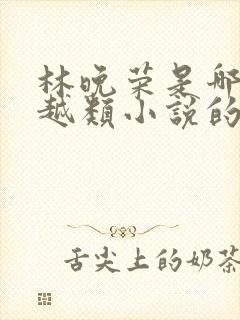 林晚荣是哪
越类小说的
舌尖上的奶茶